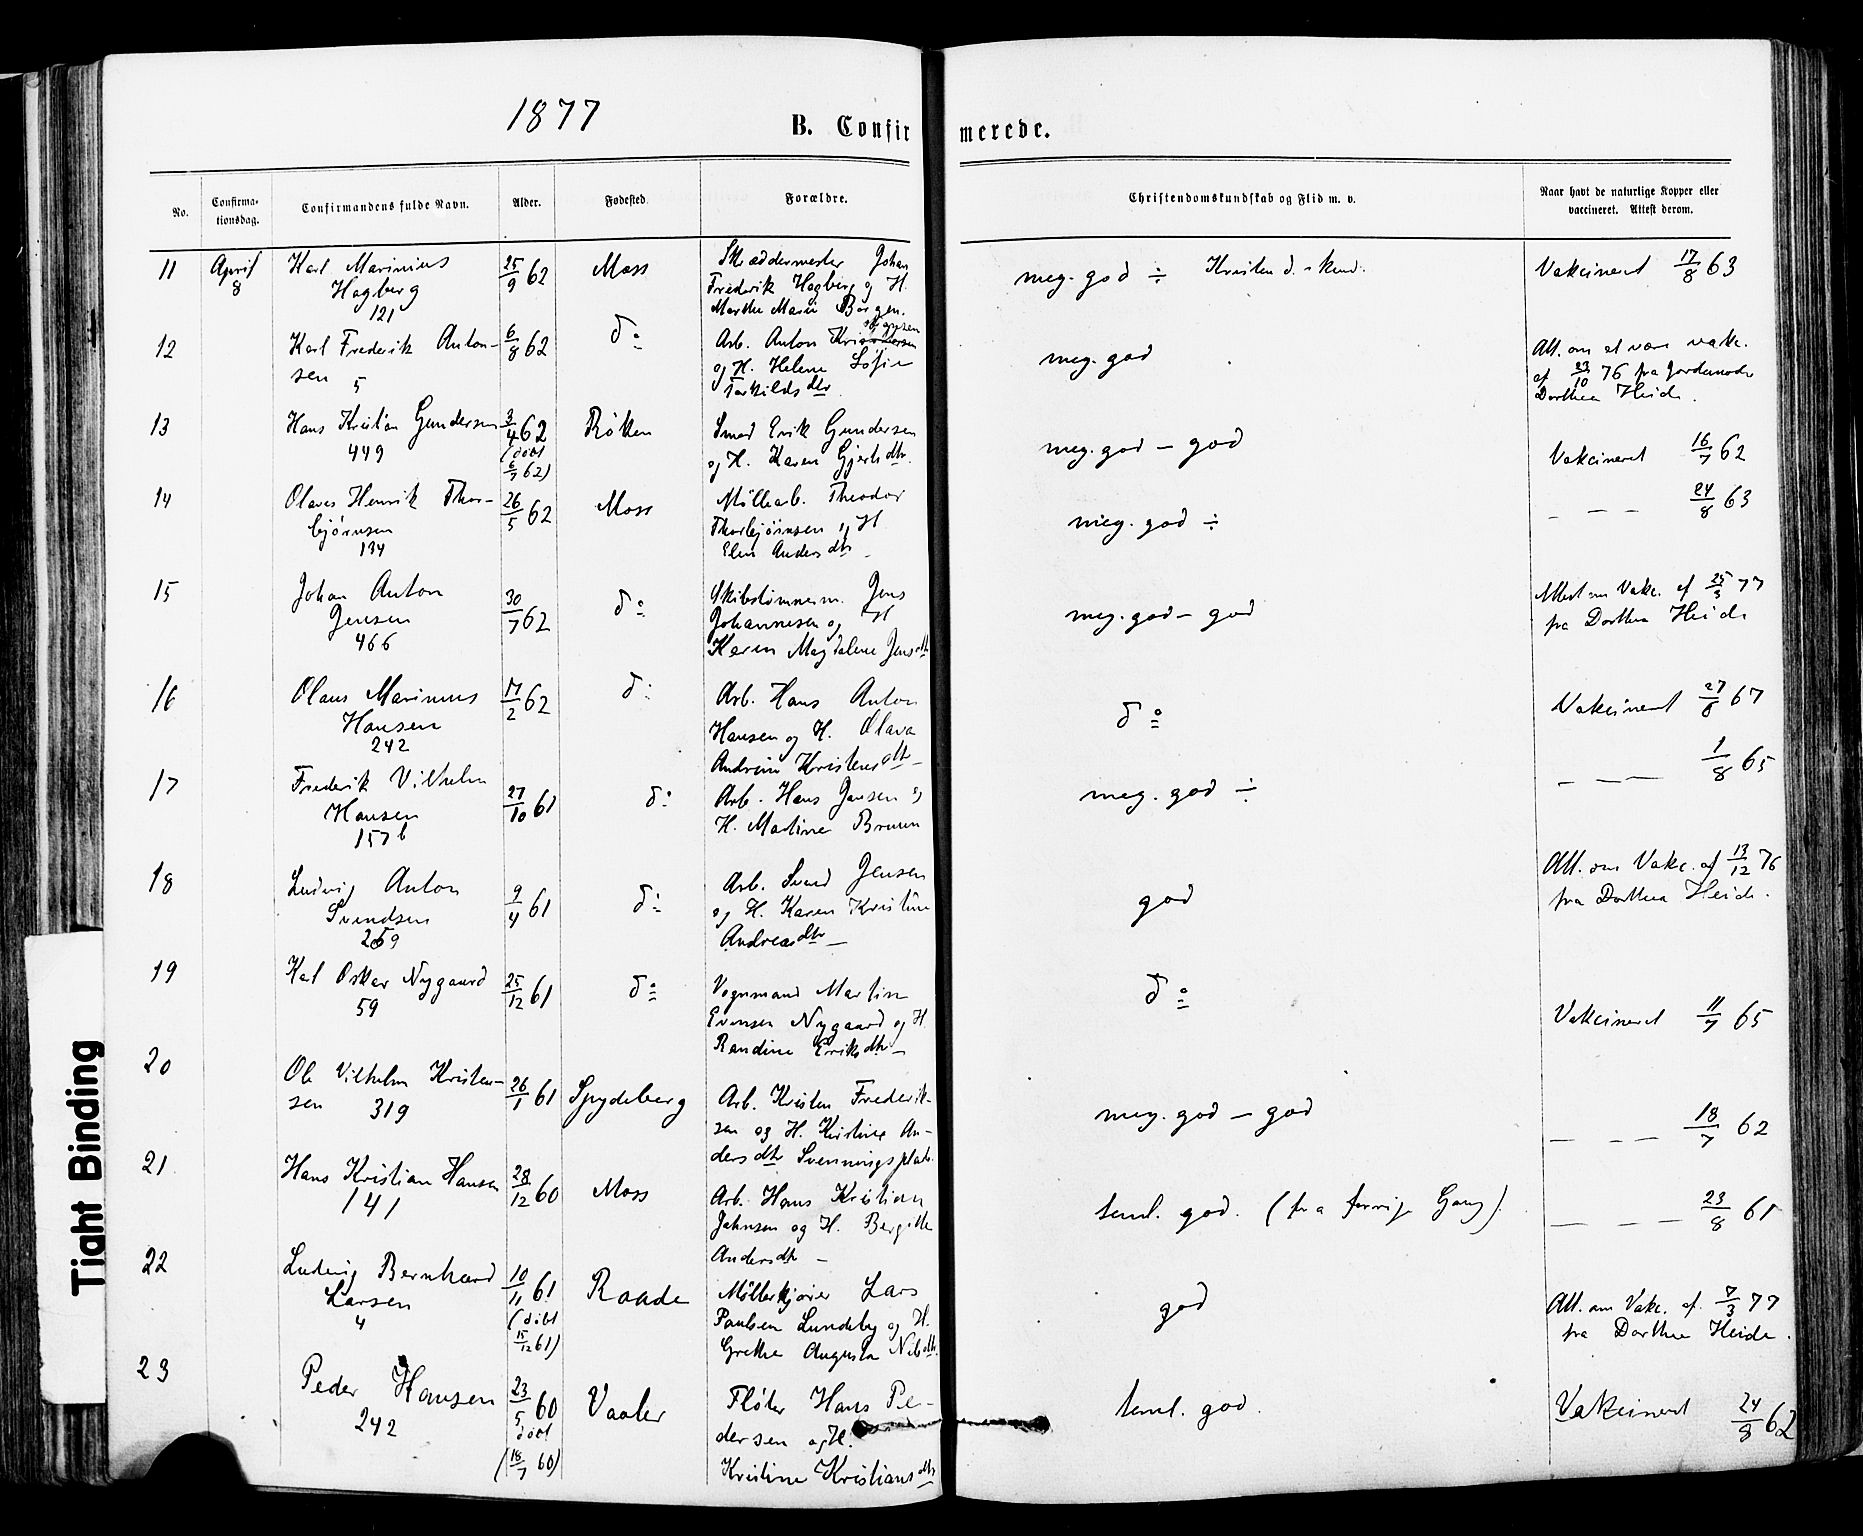 1877
B. Confirmerede.
No.
Confirma-
tionsdag.
Confirmandens fulde Navn.
Alder.
Fødested
Forældre.
Christendomskundskab og Flid m. v.
Naar havt de naturlige Kopper eller
vaccineret. Attest derom.
11 April Karl Marinius 25/9 62 Moss Skræddermester Johan meg. god ÷ Kristend.-kund. Vakcineret 17/8 63
8 Hagberg Frederik Hagberg og H.
121 Marthe Marie Borgen.
12 Karl Frederik Anton- 6/8 62 do Arb. Anton meg. god Att. om at være vakc.
sen 5 og H. Helene Sofie af 23/10 76 fra Jordemoder
Torkildsdtr Dorthea Heide.
13 Hans Kristian Gundersen 3/4 62 Røken Smed Erik Gundersen meg. god - god Vakcineret 16/7 62
449 (døbt og H. Karen
6/7 62)
14 Olaves Henrik Thor- 26/5 62 Moss Møllearb. Theodor meg. god ÷ — — — 24/8 63
bjørnsen Thorbjørnsen og H
134 Elen Andersdtr
15 Johan Anton 30/7 62 do Skibstømmerm. Jens meg. god - god Attest om Vakc. af 25/3 77
Jensen Johannesen og H fra Dorthea Heide
466 Karen Magdalene Jensdtr
16 Olaus Marinius 17/2 62 do Arb. Hans Anton do Vakcineret 27/8 67
Hansen Hansen og H. Olava
242 Andrine Kristensdtr
17 Frederik Vilhelm 27/10 61 do Arb. Hans Jensen og meg. god ÷ — — — 1/8 65
Hansen H. Martine Bruun
157 b
18 Ludvig Anton 9/4 61 do Arb. Svend Jensen god Att. om Vakc. af 13/12 76
Svendsen og H. Karen Kristine fra Dorthea Heide.
259 Andreasdtr
19 Karl Oskar Nygaard 25/12 61 do Vognmand Martin do Vakcineret 11/7 65
59 Evensen Nygaard og H.
Randine Eriksdtr
20 Ole Vilhelm Kristen- 26/1 61 Spydeberg Arb. Kristen Frederik- meg. god - god — — — 18/7 62
sen 319 sen og H. Kristine An-
dersdtr Svenningsplads.
21 Hans Kristian Hansen 28/12 60 Moss Arb. Hans Kristian teml. god. (fra forrige Gang). — — — 23/8 61
141 Johnsen og H. Bergitte
Andersdtr
22 Ludvig Bernhard 10/11 61 Raade Møllerkjører Lars god Att. om Vakc. af 7/3 77
Larsen (døbt Paulsen Lundeby og H. fra Dorthea Heide.
4 15/12 61) Grethe Augusta Nilsdtr.
23 Peder Hansen 23/5 60 Vaaler Fløter Hans Pe- teml. god. Vakcineret 24/8 62
242 døbt dersen og H.
(18/7 60) Kristine Kristiansdtr
Tight Binding